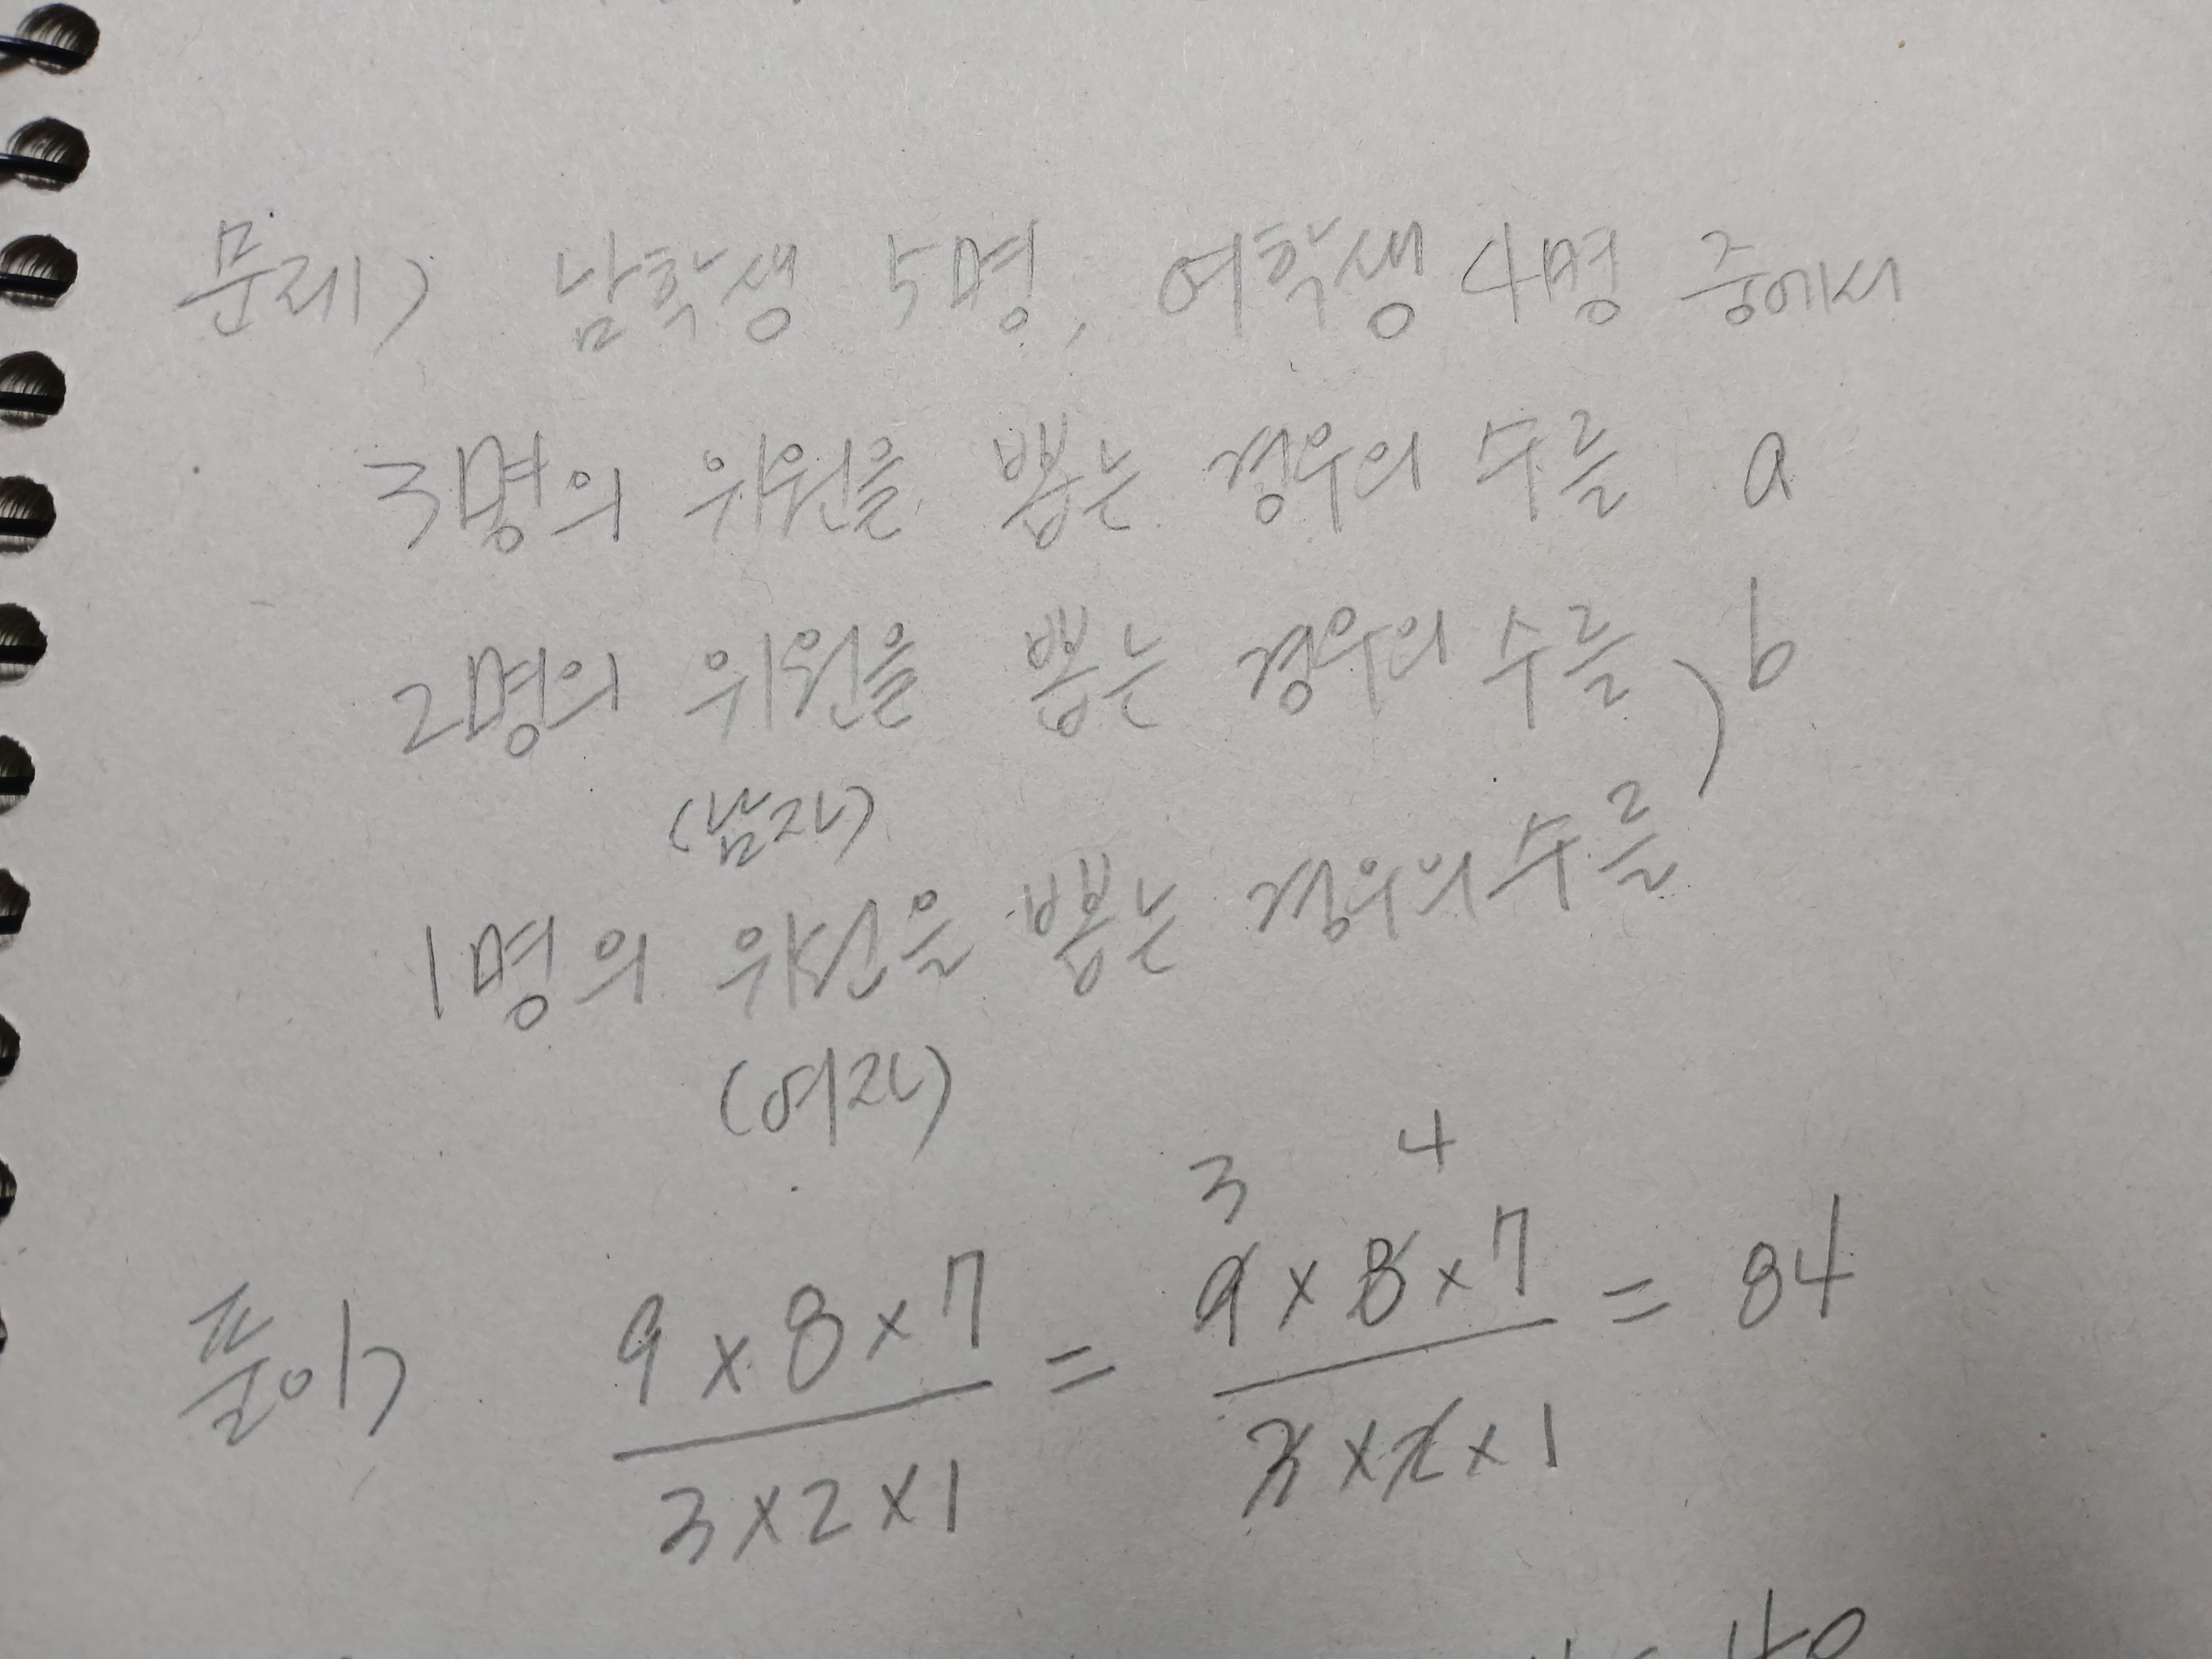 문제) 남학생 5명, 여학생 4명 중에서
3명의 위원을 뽑는 경우의 수를 a
2명의 위원을 뽑는 경우의 수를, b
(남자)
1명의 위원을 뽑는 경우의 수를
(여자)
3 4
풀이) 9×8×7 / 3×2×1 = 9×8×7 / 3×2×1 = 84
= 40